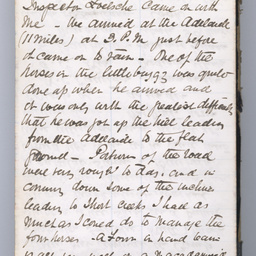 Inspector Foelsche Came on with
me - We arrived at the Adelaide
(11 miles) at 2. P.M just before
it came on to rain - One of the
horses in the little buggy was quite
done up when he arrived and
it was only with the greatest difficulty
that he was got up the hill leading
from the Adelaide to the flat
ground - Portions of the road
were very rough to day. and in
coming down some of the inclines
leading to short creeks I had as
much as I could do to manage the
four horses - a four in hand
is all very well on a macadamised